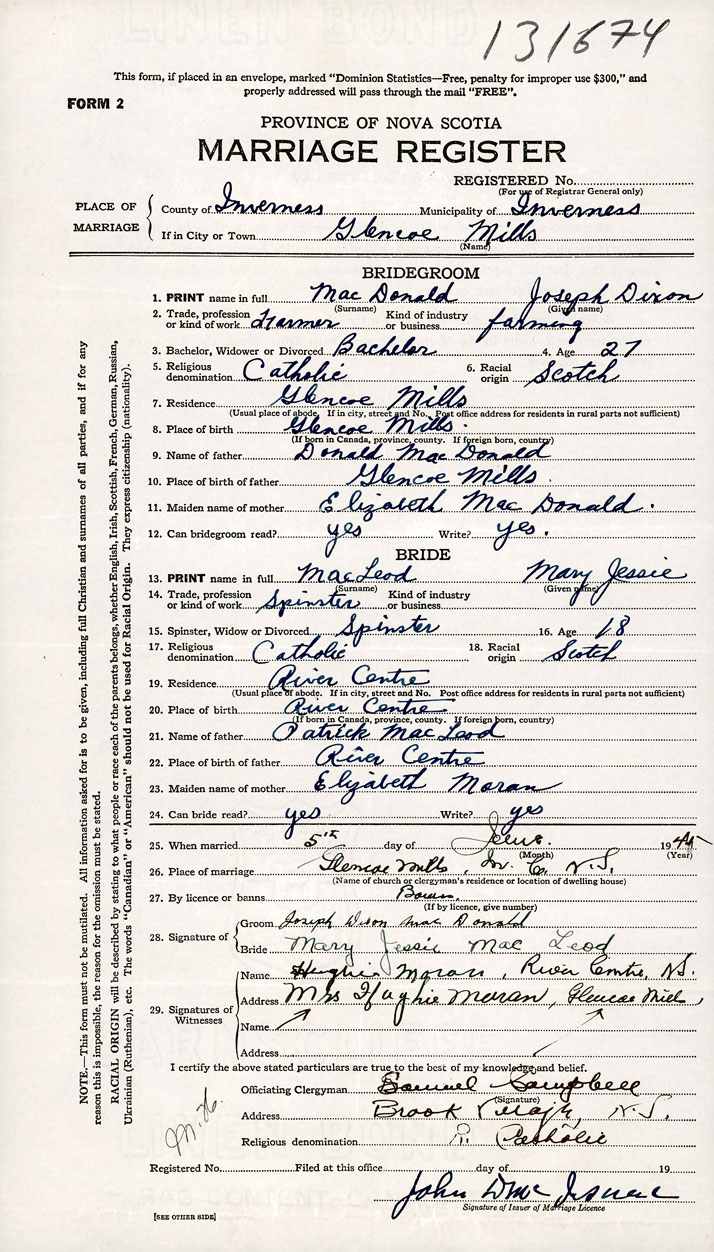 131674
This form, if placed in an envelope, marked "Dominion Statistics—Free, penalty for improper use $300," and
properly addressed will pass through the mail "FREE".
FORM 2
PROVINCE OF NOVA SCOTIA
MARRIAGE REGISTER
REGISTERED No.
(For use of Registrar General only)
PLACE OF MARRIAGE
County of Inverness Municipality of Inverness
If in City or Town Glencoe Mills
(Name)
BRIDEGROOM
1. PRINT name in full Mac Donald Joseph Dixon
(Surname) (Given name)
2. Trade, profession or kind of work Farmer Kind of industry or business farming
3. Bachelor, Widower or Divorced Bachelor 4. Age 27
5. Religious denomination Catholic 6. Racial origin Scotch
7. Residence Glencoe Mills
(Usual place of abode. If in city, street and No. Post office address for residents in rural parts not sufficient)
8. Place of birth Glencoe Mills.
(If born in Canada, province, county. If foreign born, country)
9. Name of father Donald Mac Donald
10. Place of birth of father Glencoe Mills.
11. Maiden name of mother Elizabeth Mac Donald.
12. Can bridegroom read? yes Write? yes.
BRIDE
13. PRINT name in full MacLeod Mary Jessie
(Surname) (Given name)
14. Trade, profession or kind of work Spinster Kind of industry or business
15. Spinster, Widow or Divorced Spinster 16. Age 18
17. Religious denomination Catholic 18. Racial origin Scotch
19. Residence River Centre
(Usual place of abode. If in city, street and No. Post office address for residents in rural parts not sufficient)
20. Place of birth River Centre
(If born in Canada, province, county. If foreign born, country)
21. Name of father Patrick Mac Leod
22. Place of birth of father River Centre
23. Maiden name of mother Elizabeth Moran
24. Can bride read? yes Write? yes
25. When married 5th day of June. 19
(Month) (Year)
26. Place of marriage Glencoe Mills, In. Co. N.S.
(Name of church or clergyman's residence or location of dwelling house)
27. By licence or banns
(If by licence, give number)
28. Signature of
Groom Joseph Dixon Mac Donald
Bride Mary Jessie Mac Leod
29. Signatures of Witnesses
Name Hughie Moran, River Centre, N.S.
Address Mrs Hughie Moran, Glencoe Mills
Name
Address
I certify the above stated particulars are true to the best of my knowledge and belief.
Officiating Clergyman Samuel Campbell
(Signature)
Address Brook Village, N.S.
Religious denomination R. Catholic
Registered No. Filed at this office day of 19
John D Mc Isaac
Signature of Issuer of Marriage Licence
[SEE OTHER SIDE]
NOTE.—This form must not be mutilated. All information asked for is to be given, including full Christian and surnames of all parties, and if for any
reason this is impossible, the reason for the omission must be stated.
RACIAL ORIGIN will be described by stating to what people or race each of the parents belongs, whether English, Irish, Scottish, French, German, Russian,
Ukrainian (Ruthenian), etc. The words "Canadian" or "American" should not be used for Racial Origin. They express citizenship (nationality).